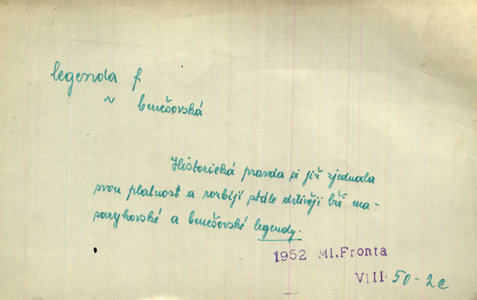 legenda f
~ benešovská
Historická pravda si již zjednala
svou platnost a rozbíjí stále drtivěji
sarykovské a benešovské legendy.
1952 Ml. Fronta
VIII 50-2c